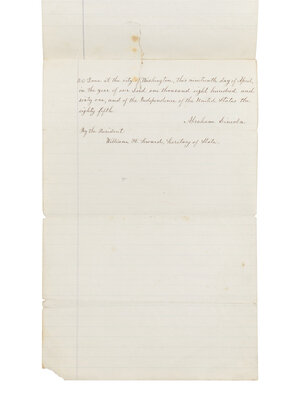 Done at the city of Washington, this nineteenth day of April,
in the year of our Lord one thousand eight hundred and
sixty one, and of the Independence of the United States the
eighty fifth.
Abraham Lincoln.
By the President
William H. Seward, Secretary of State.